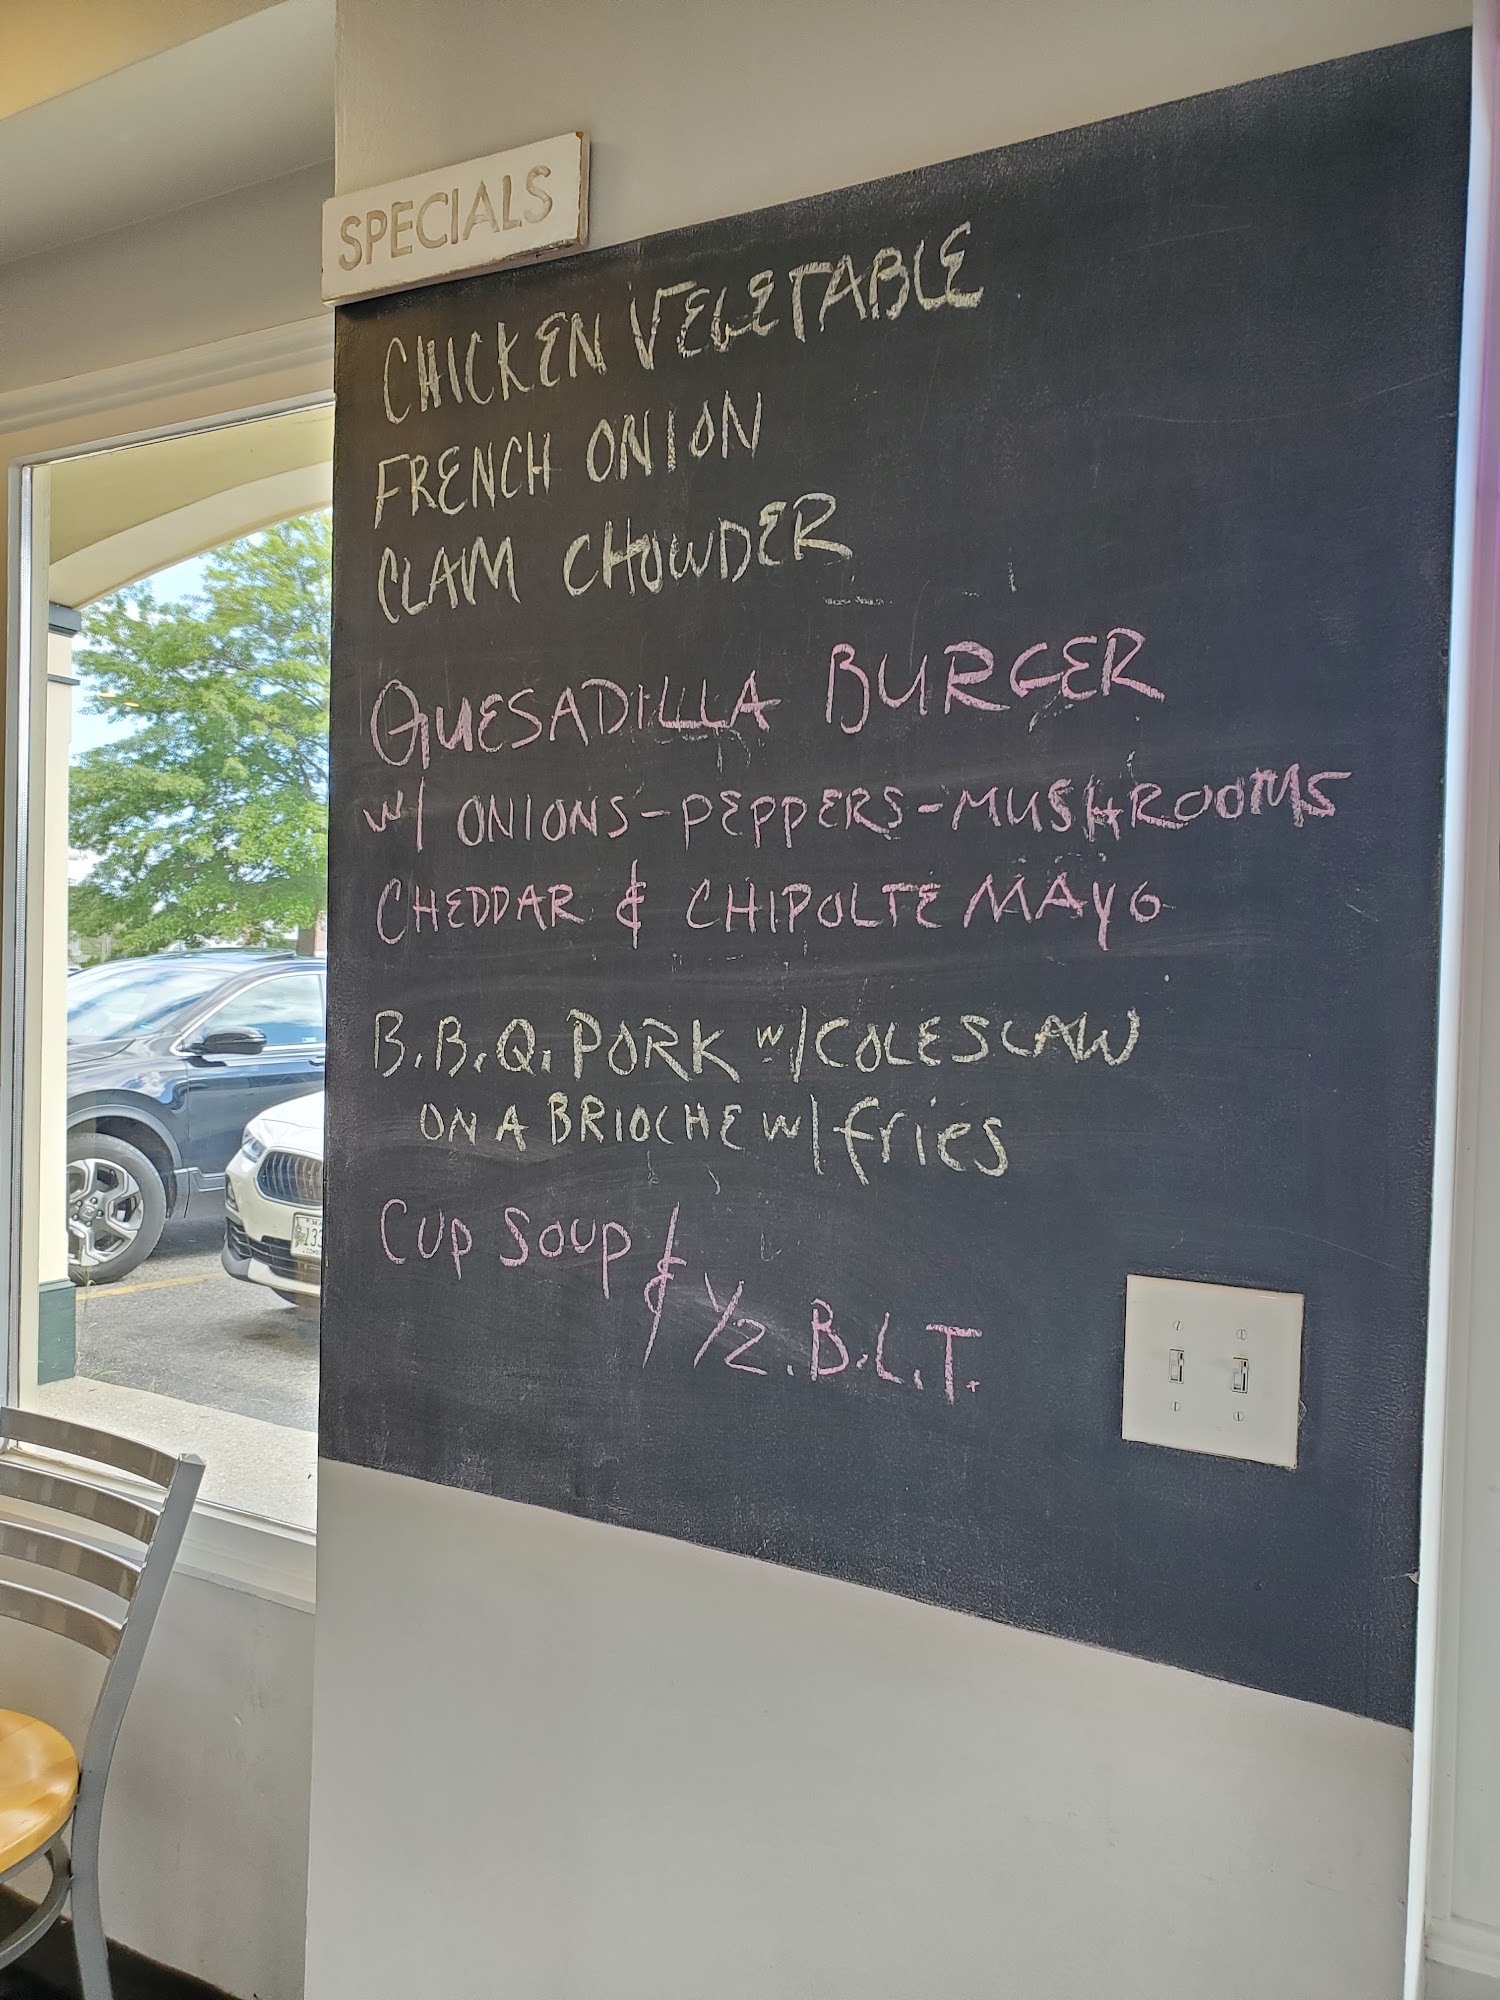 SPECIALS
CHICKEN VEGETABLE
FRENCH ONION
CLAM CHOWDER
QUESADILLA BURGER
w/ ONIONS-PEPPERS-MUSHROOMS
CHEDDAR & CHIPOLTE MAYO
B.B.Q. PORK w/ COLESLAW
ON A BRIOCHE w/ fries
CUP SOUP & 1/2 . B.L.T.